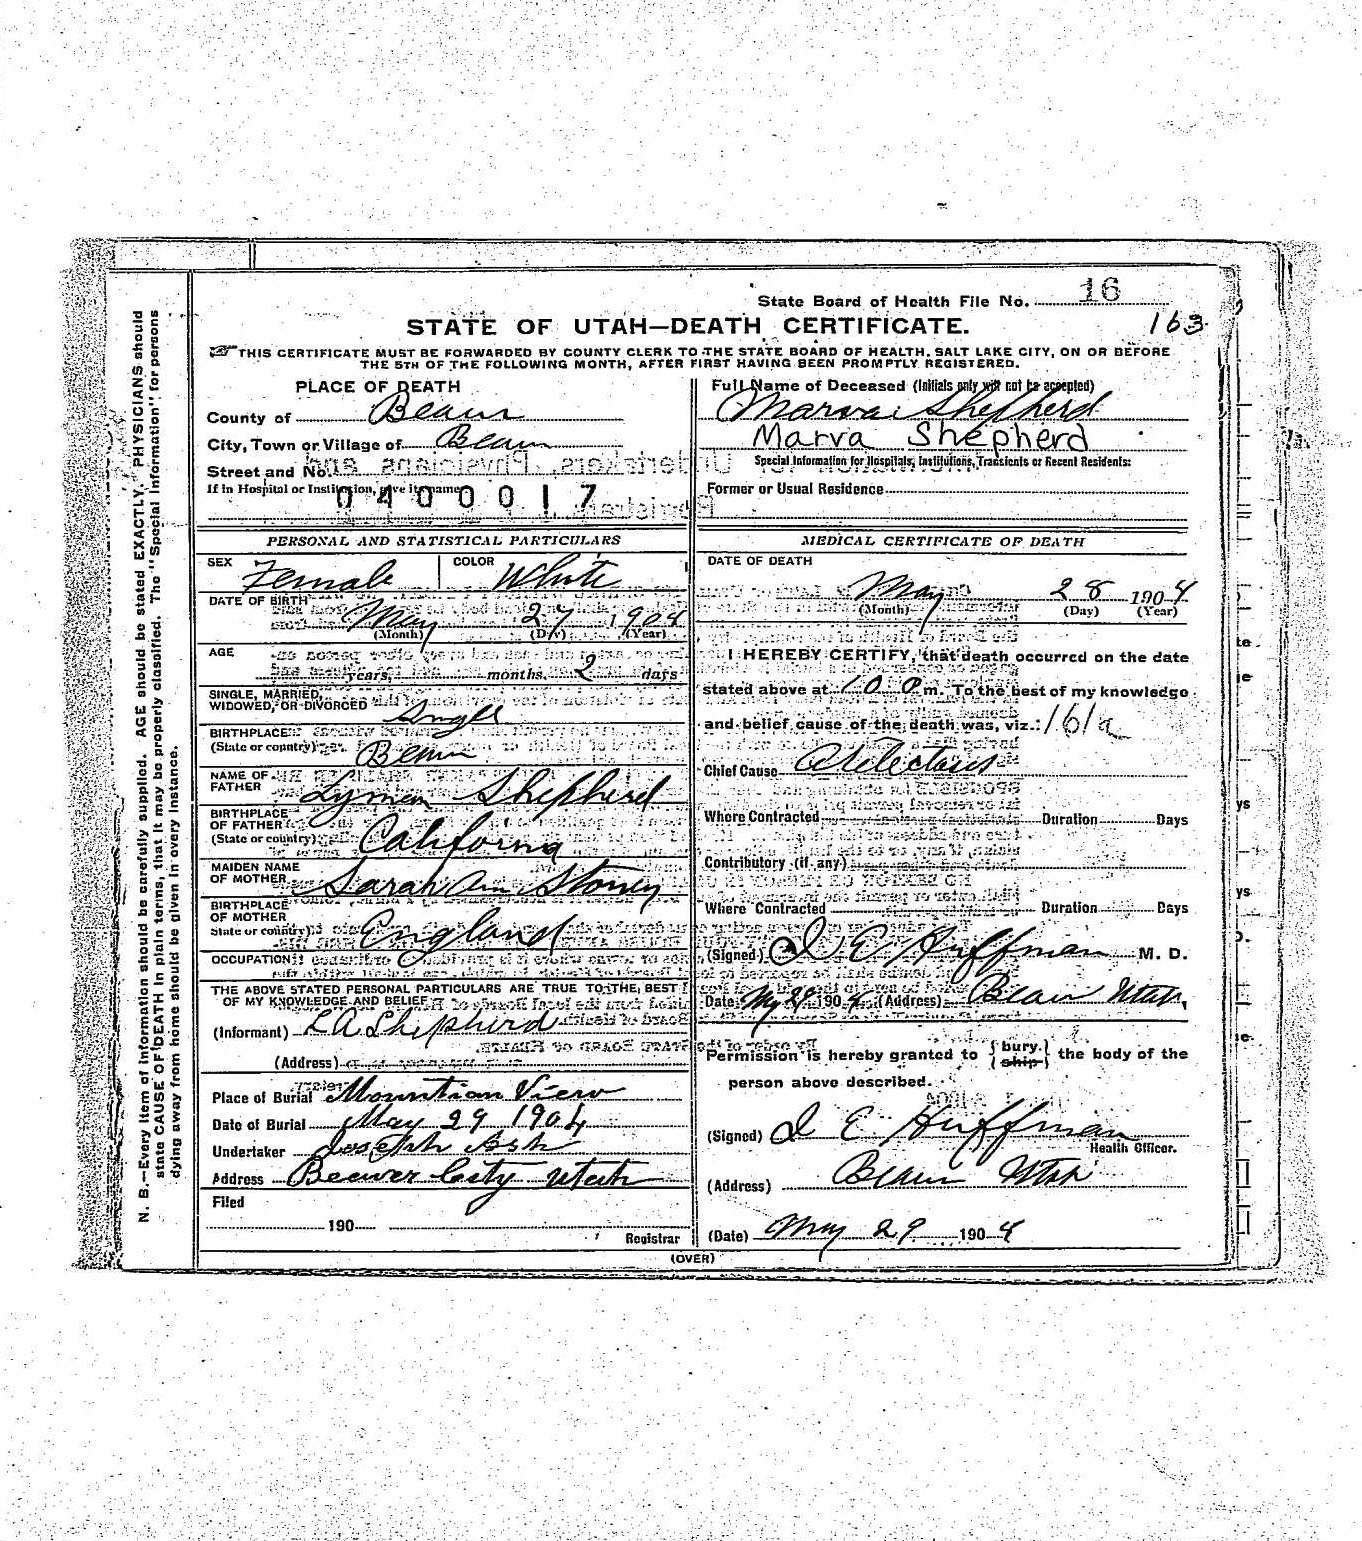 State Board of Health File No. 16
STATE OF UTAH—DEATH CERTIFICATE.
163
THIS CERTIFICATE MUST BE FORWARDED BY COUNTY CLERK TO THE STATE BOARD OF HEALTH, SALT LAKE CITY, ON OR BEFORE
THE 5TH OF THE FOLLOWING MONTH, AFTER FIRST HAVING BEEN PROMPTLY REGISTERED.
PLACE OF DEATH
County of Beaver
City, Town or Village of Beaver
Street and No.
If in Hospital or Institution, give its name
0400017
Full Name of Deceased (Initials only will not be accepted)
Marva Shepherd
Marva Shepherd
Special Information for Hospitals, Institutions, Transients or Recent Residents:
Former or Usual Residence
PERSONAL AND STATISTICAL PARTICULARS
SEX Female COLOR White
DATE OF BIRTH May 27 1904
(Month) (Day) (Year)
AGE
years, months, 2 days
SINGLE, MARRIED,
WIDOWED, OR DIVORCED Single
BIRTHPLACE
(State or country) Beaver
NAME OF
FATHER Lyman Shepherd
BIRTHPLACE
OF FATHER
(State or country) California
MAIDEN NAME
OF MOTHER Sarah Ann Stoney
BIRTHPLACE
OF MOTHER
State or country) England
OCCUPATION
THE ABOVE STATED PERSONAL PARTICULARS ARE TRUE TO THE BEST
OF MY KNOWLEDGE AND BELIEF
(Informant) L A Shepherd
(Address)
Place of Burial Mountian View
Date of Burial May 29 1904
Undertaker Joseph Ash
Address Beaver City Utah
Filed
190
Registrar
MEDICAL CERTIFICATE OF DEATH
DATE OF DEATH
May 28 1904
(Month) (Day) (Year)
I HEREBY CERTIFY, that death occurred on the date
stated above at 10 P m. To the best of my knowledge
and belief cause of the death was, viz.: 161a
Chief Cause Atelectasis
Where Contracted Duration Days
Contributory (if any)
Where Contracted Duration Days
(Signed) I E Huffman M. D.
Date May 29 1904 (Address) Beaver Utah
Permission is hereby granted to {bury / ship} the body of the
person above described.
(Signed) I E Huffman
Health Officer.
(Address) Beaver Utah
(Date) May 29 1904
(OVER)
N. B.—Every item of information should be carefully supplied. AGE should be stated EXACTLY. PHYSICIANS should
state CAUSE OF DEATH in plain terms, that it may be properly classified. The "Special Information" for persons
dying away from home should be given in every instance.